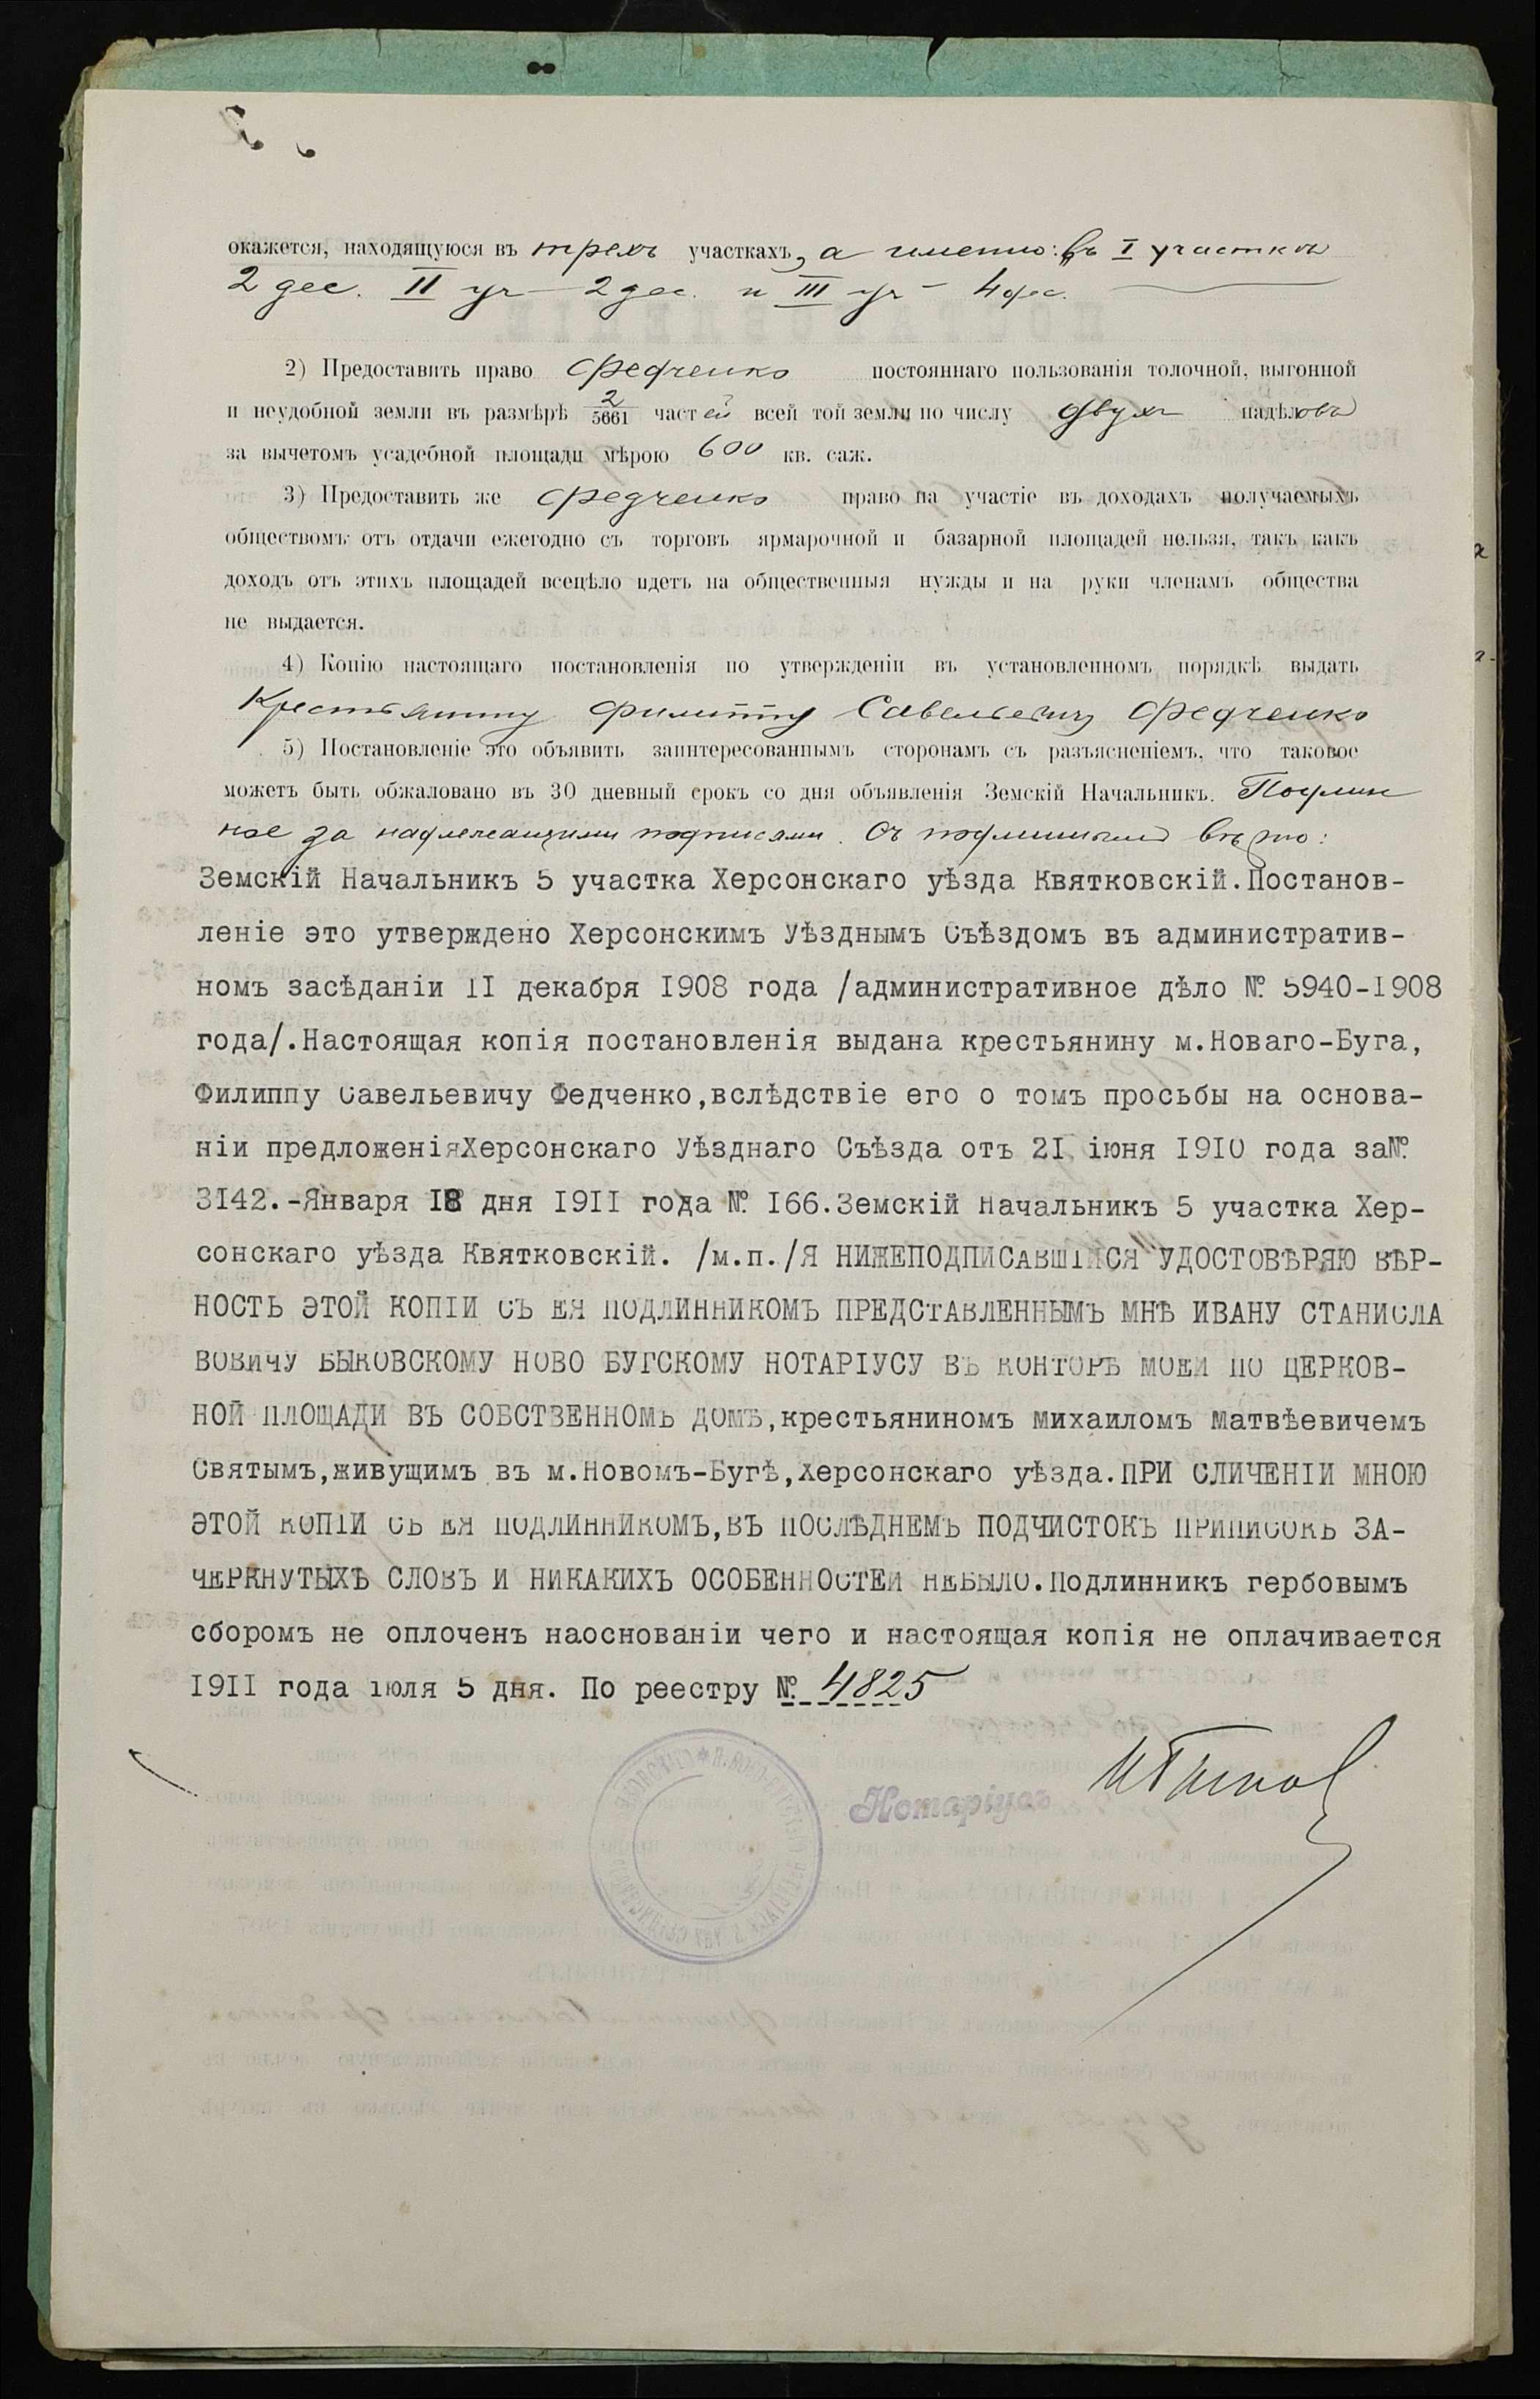 окажется, находящуюся въ трехъ участкахъ, а именно: въ I участкѣ
2 дес. II уч – 2 дес. и III уч – 4 дес.
2) Предоставить право Федченко постояннаго пользованія толочной, выгонной
и неудобной земли въ размѣрѣ 2/5661 частей всей той земли по числу двухъ надѣловъ
за вычетомъ усадебной площади мѣрою 600 кв. саж.
3) Предоставить же Федченко право на участіе въ доходахъ получаемыхъ
обществомъ отъ отдачи ежегодно съ торговъ ярмарочной и базарной площадей нельзя, такъ какъ
доходъ отъ этихъ площадей всецѣло идетъ на общественныя нужды и на руки членамъ общества
не выдается.
4) Копію настоящаго постановленія по утвержденіи въ установленномъ порядкѣ выдать
Крестьянину Филиппу Савельевичу Федченко
5) Постановленіе это объявить заинтересованнымъ сторонамъ съ разъясненіемъ, что таковое
можетъ быть обжаловано въ 30 дневный срокъ со дня объявленія Земскій Начальникъ. Подлин
ное за надлежащими подписями. Съ подлиннымъ вѣрно:
Земскій Начальникъ 5 участка Херсонскаго уѣзда Квятковскій.Постанов-
леніе это утверждено Херсонскимъ Уѣзднымъ Съѣздомъ въ административ-
номъ засѣданіи II декабря I908 года /административное дѣло № 5940-I908
года/.Настоящая копія постановленія выдана крестьянину м.Новаго-Буга,
Филиппу Савельевичу Федченко,вслѣдствіе его о томъ просьбы на основа-
ніи предложеніяХерсонскаго Уѣзднаго Съѣзда отъ 2I іюня I9I0 года за№
3I42.-Января I8 дня I9II года № I66.Земскій Начальникъ 5 участка Хер-
сонскаго уѣзда Квятковскій. /м.п./Я НИЖЕПОДПИСАВШІЙСЯ УДОСТОВѢРЯЮ ВѢР-
НОСТЬ ЭТОЙ КОПІИ СЪ ЕЯ ПОДЛИННИКОМЪ ПРЕДСТАВЛЕННЫМЪ МНѢ ИВАНУ СТАНИСЛА
ВОВИЧУ БЫКОВСКОМУ НОВО БУГСКОМУ НОТАРІУСУ ВЪ КОНТОРѢ МОЕЙ ПО ЦЕРКОВ-
НОЙ ПЛОЩАДИ ВЪ СОБСТВЕННОМЪ ДОМѢ,крестьяниномъ Михаиломъ Матвѣевичемъ
Святымъ,живущимъ въ м.Новомъ-Бугѣ,Херсонскаго уѣзда.ПРИ СЛИЧЕНІИ МНОЮ
ЭТОЙ КОПІИ СЪ ЕЯ ПОДЛИННИКОМЪ,ВЪ ПОСЛѢДНЕМЪ ПОДЧИСТОКЪ ПРИПИСОКЪ ЗА-
ЧЕРКНУТЫХЪ СЛОВЪ И НИКАКИХЪ ОСОБЕННОСТЕЙ НЕБЫЛО.Подлинникъ гербовымъ
сборомъ не оплоченъ наоснованіи чего и настоящая копія не оплачивается
I9II года іюля 5 дня. По реестру № 4825
Нотаріусъ